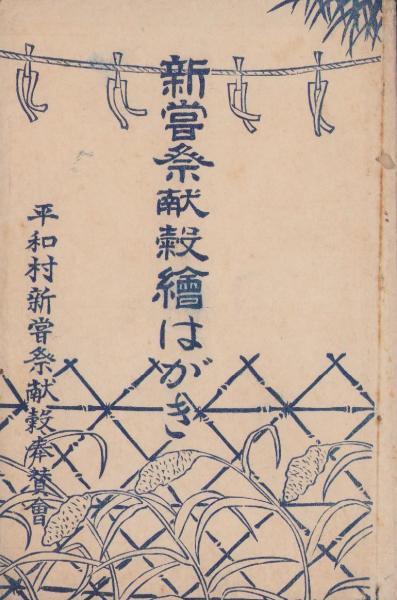 新嘗祭献穀繪はがき
平和村新嘗祭献穀奉賛會